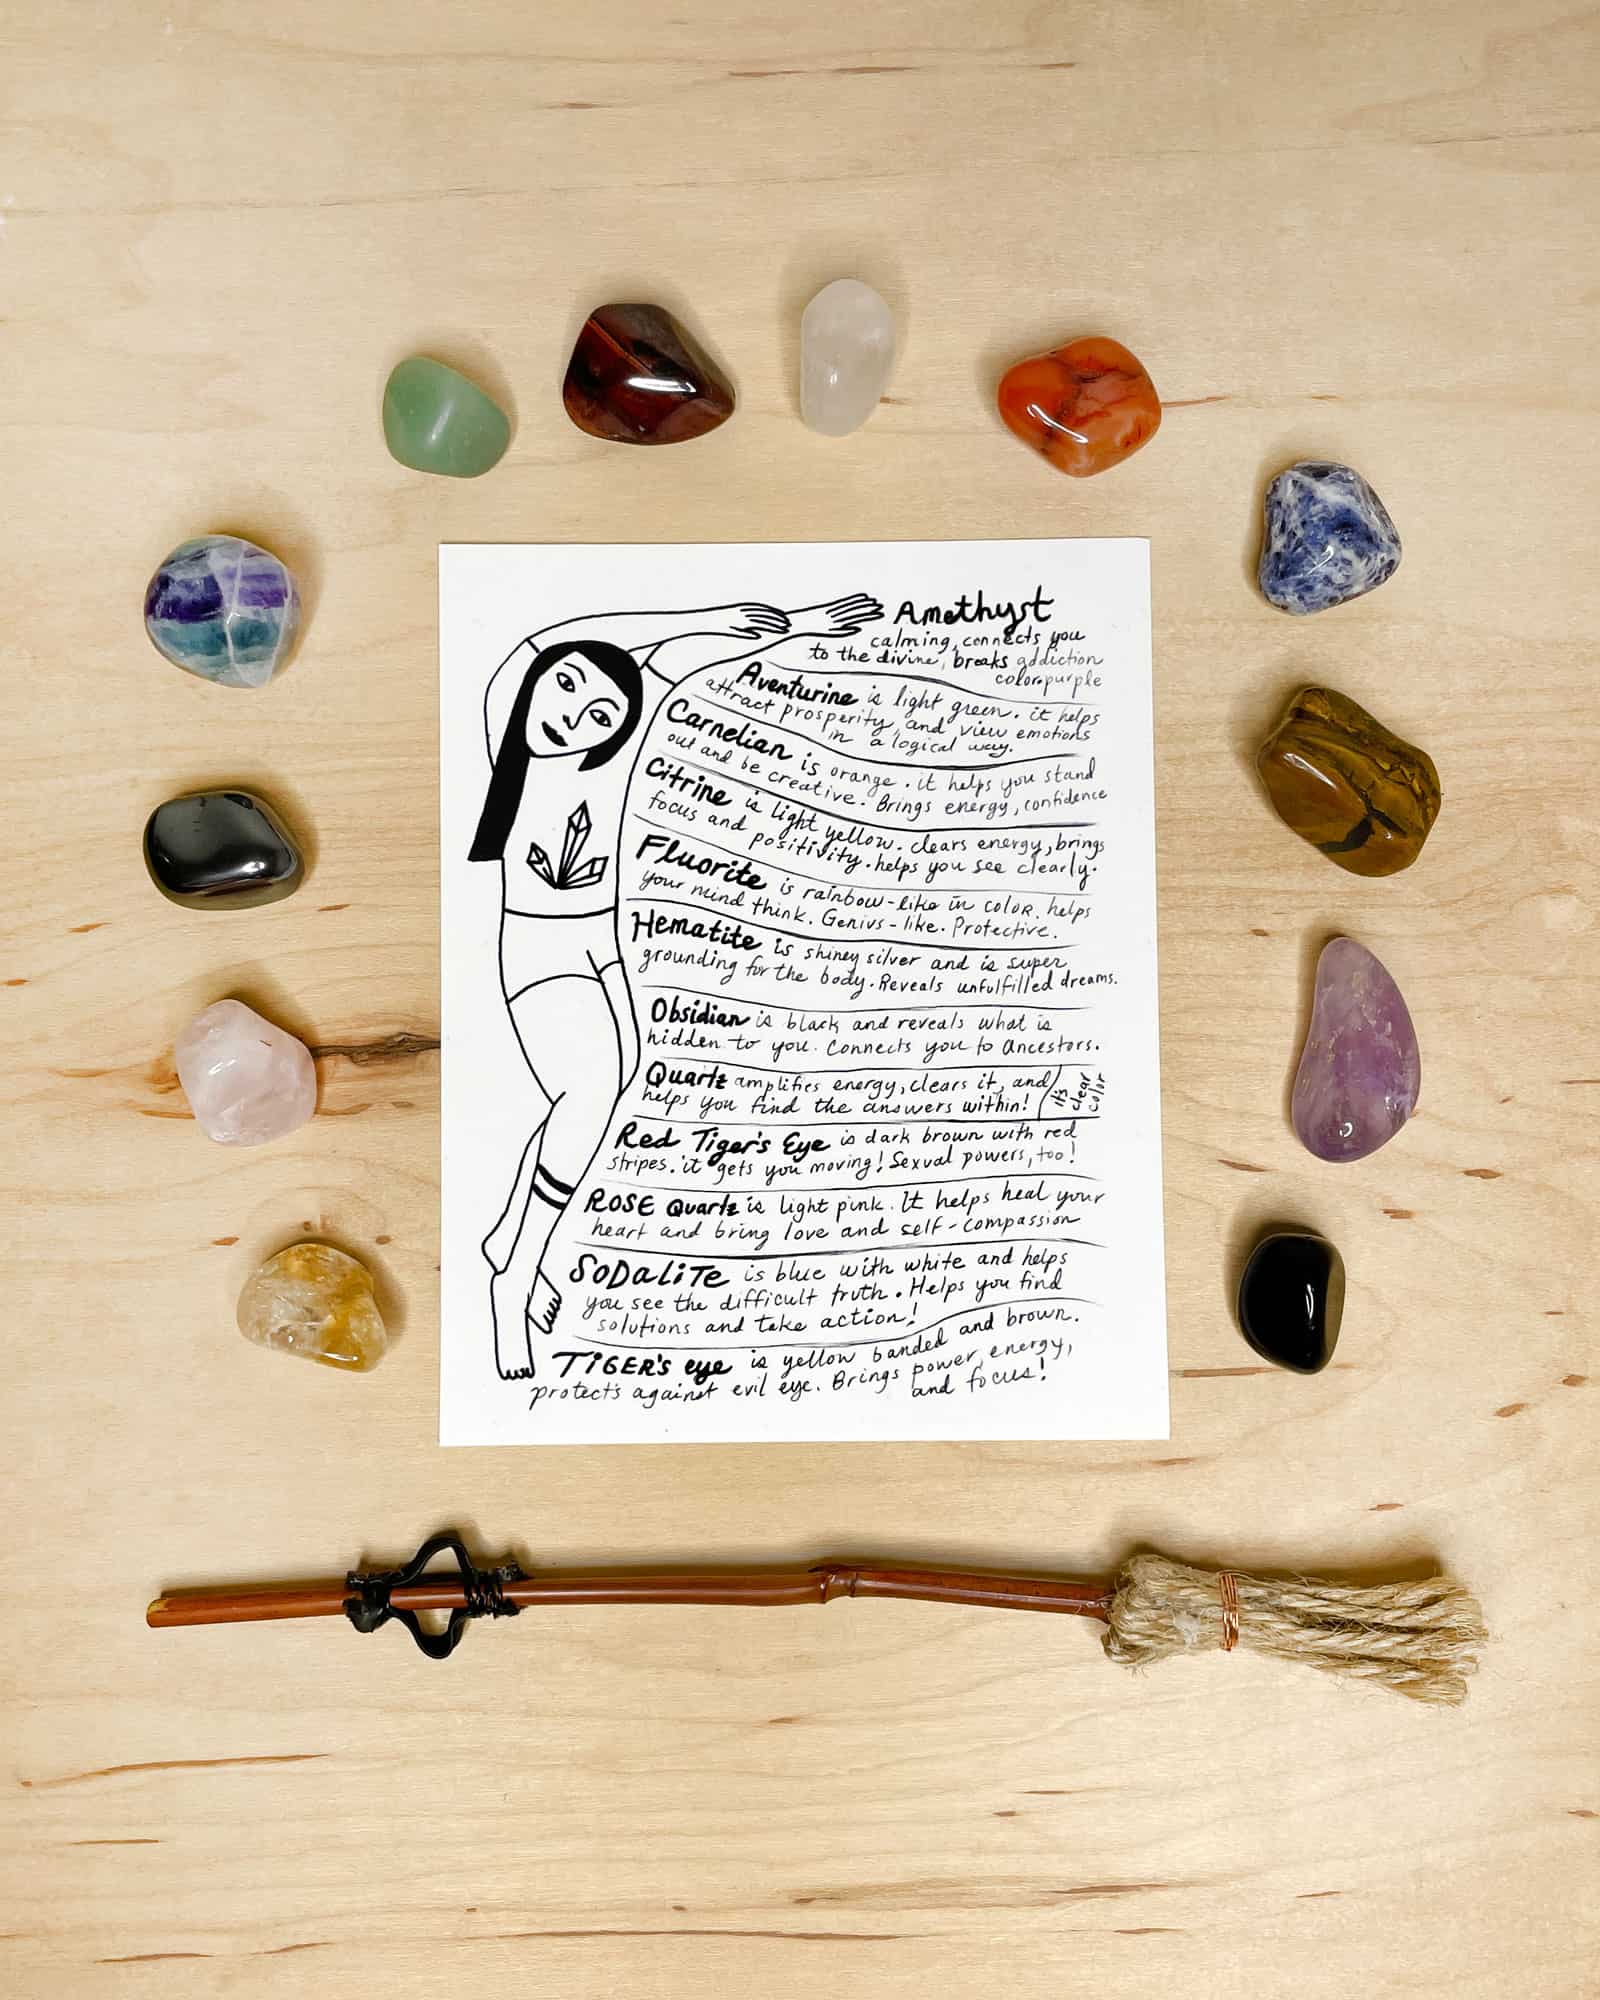 Amethyst
calming, connects you
to the divine, breaks addiction
color: purple
Aventurine is light green. it helps
attract prosperity, and view emotions
in a logical way.
Carnelian is orange. it helps you stand
out and be creative. Brings energy, confidence
Citrine is light yellow. clears energy, brings
focus and positivity. helps you see clearly.
Fluorite is rainbow-like in color. helps
your mind think. Genius-like. Protective.
Hematite is shiney silver and is super
grounding for the body. Reveals unfulfilled dreams.
Obsidian is black and reveals what is
hidden to you. Connects you to Ancestors.
Quartz amplifies energy, clears it, and
helps you find the answers within!
it's
clear
color
Red Tiger's Eye is dark brown with red
stripes. it gets you moving! Sexual powers, too!
ROSE Quartz is light pink. It helps heal your
heart and bring love and self-compassion
SODaLiTe is blue with white and helps
you see the difficult truth. Helps you find
solutions and take action!
TiGER's eye is yellow banded and brown.
protects against evil eye. Brings power, energy,
and focus!